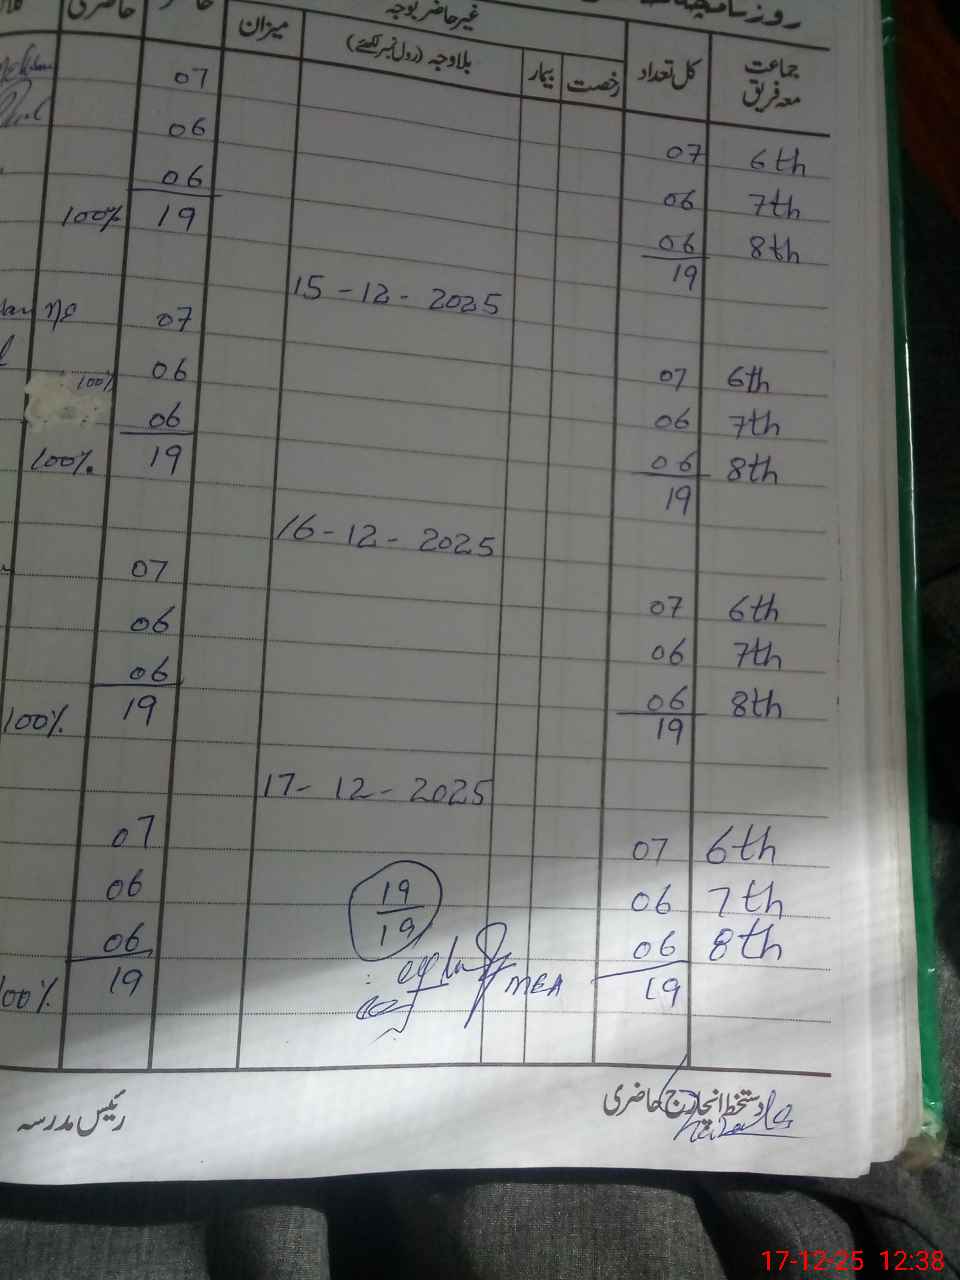 غیر حاضر بوجہ
جماعت معہ فریق کل تعداد رخصت بیمار بلاوجہ (رول نمبر لکھئے) میزان
07
6th 07 06
7th 06 06
8th 06 19 100%
19
15-12-2025
07
6th 07 06 100%
7th 06 06
8th 06 19 100%
19
16-12-2025
07
6th 07 06
7th 06 06
8th 06 19 100%
19
17-12-2025
6th 07 07
7th 06 19/19 06
8th 06 06
19 MEA 19 100%
دستخط انچارج حاضری رئیس مدرسہ
17-12-25 12:38